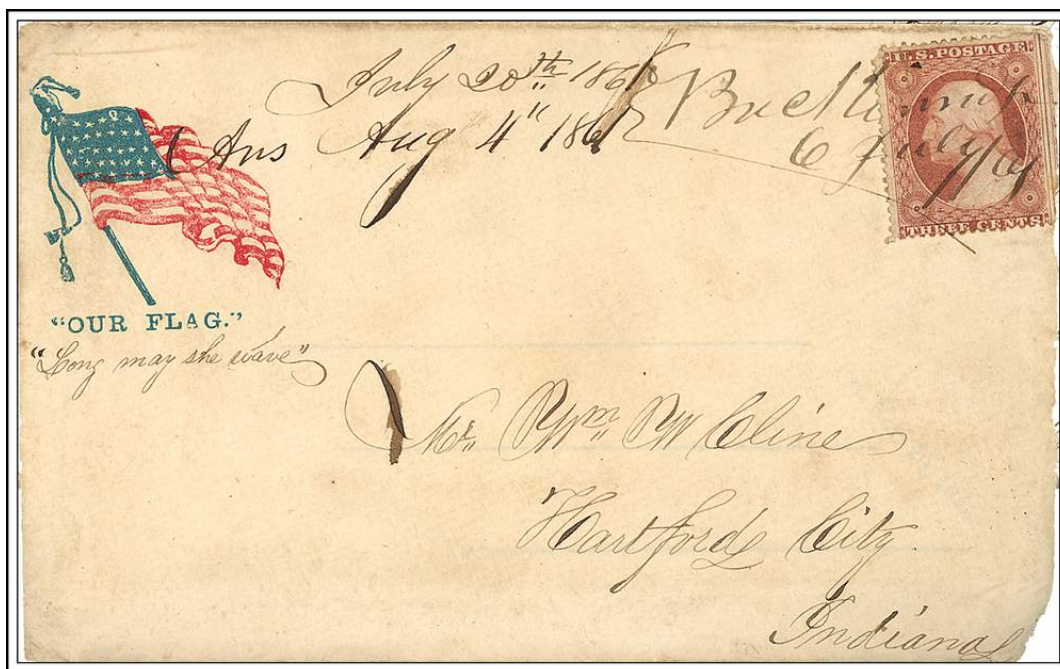 July 20th 186
Ans Aug 4" 186
6 July/61
U.S. POSTAGE
THREE CENTS
"OUR FLAG."
"Long may she wave"
Mr. Wm W Cline
Hartford City
Indiana